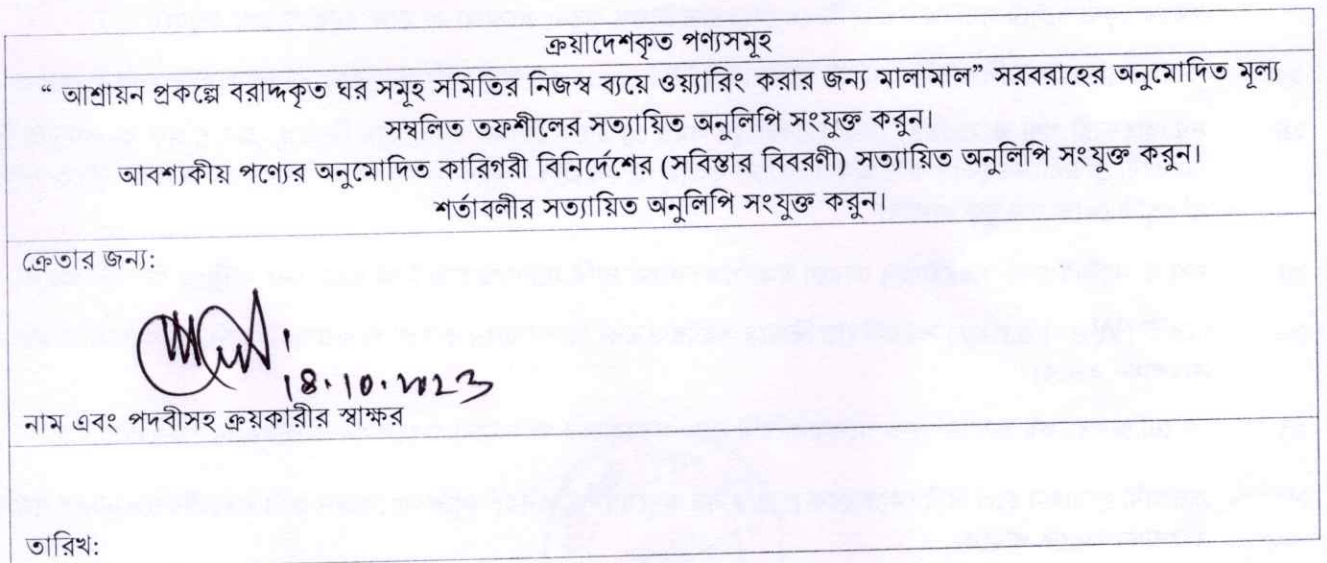 ক্রয়াদেশকৃত পণ্যসমূহ
“ আশ্রায়ন প্রকল্পে বরাদ্দকৃত ঘর সমূহ সমিতির নিজস্ব ব্যয়ে ওয়্যারিং করার জন্য মালামাল” সরবরাহের অনুমোদিত মূল্য
সম্বলিত তফশীলের সত্যায়িত অনুলিপি সংযুক্ত করুন।
আবশ্যকীয় পণ্যের অনুমোদিত কারিগরী বিনির্দেশের (সবিস্তার বিবরণী) সত্যায়িত অনুলিপি সংযুক্ত করুন।
শর্তাবলীর সত্যায়িত অনুলিপি সংযুক্ত করুন।
ক্রেতার জন্য:
18.10.2023
নাম এবং পদবীসহ ক্রয়কারীর স্বাক্ষর
তারিখ: